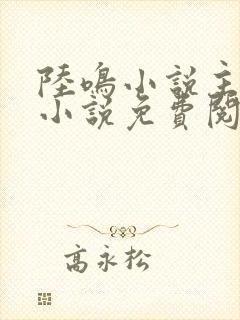 陸鳴小說主
小說免費閱
高永松